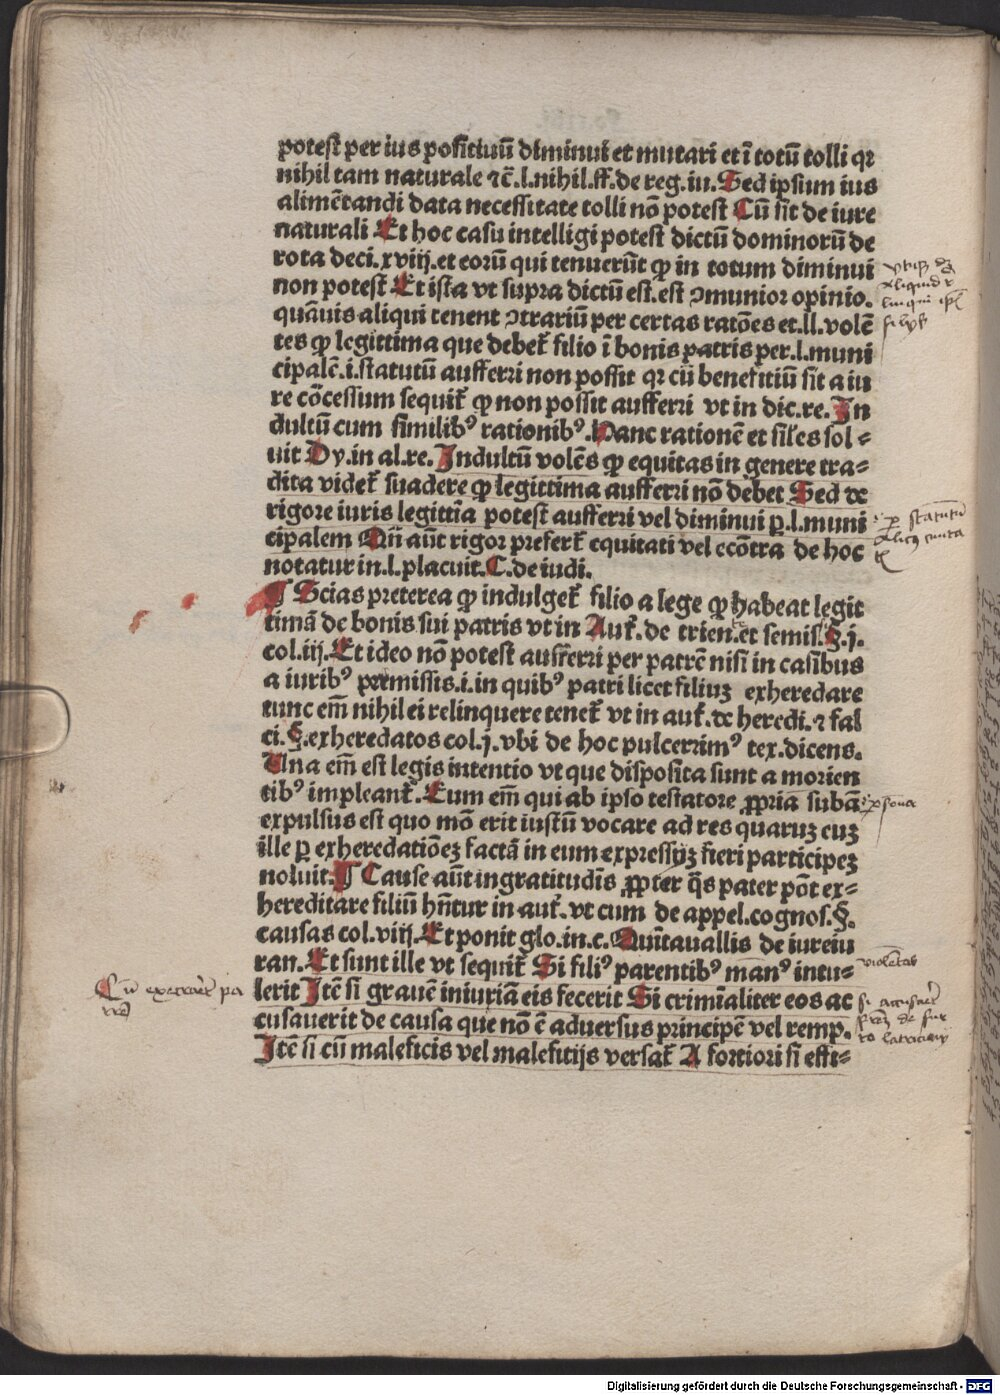 potest per ius positiuū diminui et mutari et ī totū tolli qꝛ
nihil tam naturale ⁊c̄.l.nihil.ff.de reg.iu.Sed ipsum ius
alimētandi data necessitate tolli nō potest Cū sit de iure
naturali Et hoc casu intelligi potest dictū dominorū de
rota deci.xviij.et eorū qui tenuerūt ꝙ in totum diminui
non potest Et ista vt supra dictū est.est ꝯmunior opinio.
quāuis aliqui tenent ꝯtrariū per certas ratōes et.ll.volē
tes ꝙ legittima que debet᷑ filio ī bonis patris per.l.muni
cipalē.i.statutū aufferri non possit qꝛ cū benefitiū sit a iu
re cōcessum sequit᷑ ꝙ non possit aufferri vt in dic.re.In
dultū cum similibꝰ rationibꝰ.Hanc rationē et siles sol⸗
uit Dy.in al.re.Indultū volēs ꝙ equitas in genere tra⸗
dita videt᷑ suadere ꝙ legittima aufferri nō debet Sed de
rigore iuris legittīa potest aufferri vel diminui ꝑ.l.muni
cipalem Qn̄ aūt rigor prefert᷑ equitati vel ecōtra de hoc
notatur in.l.placuit.C.de iudi.
¶ Scias preterea ꝙ indulget᷑ filio a lege ꝙ habeat legit
timā de bonis sui patris vt in Aut᷑.de trien.et semis.§.j.
col.iij.Et ideo nō potest aufferri per patrē nisi in casibus
a iuribꝰ premissis.i.in quibꝰ patri licet filiuꝫ exheredare
tunc em̄ nihil ei relinquere tenet᷑ vt in aut᷑.de heredi.⁊ fal
ci.§.exheredatos col.j.vbi de hoc pulcerrimꝰ tex.dicens.
Una em̄ est legis intentio vt que disposita sunt a morien
tibꝰ impleant᷑.Eum em̄ qui ab ipso testatore ꝓpria subā
expulsus est quo mō erit iustū vocare ad res quaruꝫ euꝫ
ille ꝑ exheredatiōeꝫ factā in eum expressyꝫ fieri participeꝫ
noluit.¶ Cause aūt ingratitudīs ꝓpter q̄s pater pōt ex⸗
hereditare filiū hn̄tur in aut᷑.vt cum de appel.cognos.§.
causas col.viij.Et ponit glo.in.c.Quītauallis de iureiu
ran.Et sunt ille vt sequit᷑ Si filiꝰ parentibꝰ manꝰ intu⸗
violentas
Cū
lerit Itē si grauē iniuriā eis fecerit Si crimīaliter eos ac
cusauerit de causa que nō ē aduersus principē vel remp.
Itē si cū maleficis vel malefitijs versat᷑ A fortiori si effi⸗
Digitalisierung gefördert durch die Deutsche Forschungsgemeinschaft - DFG